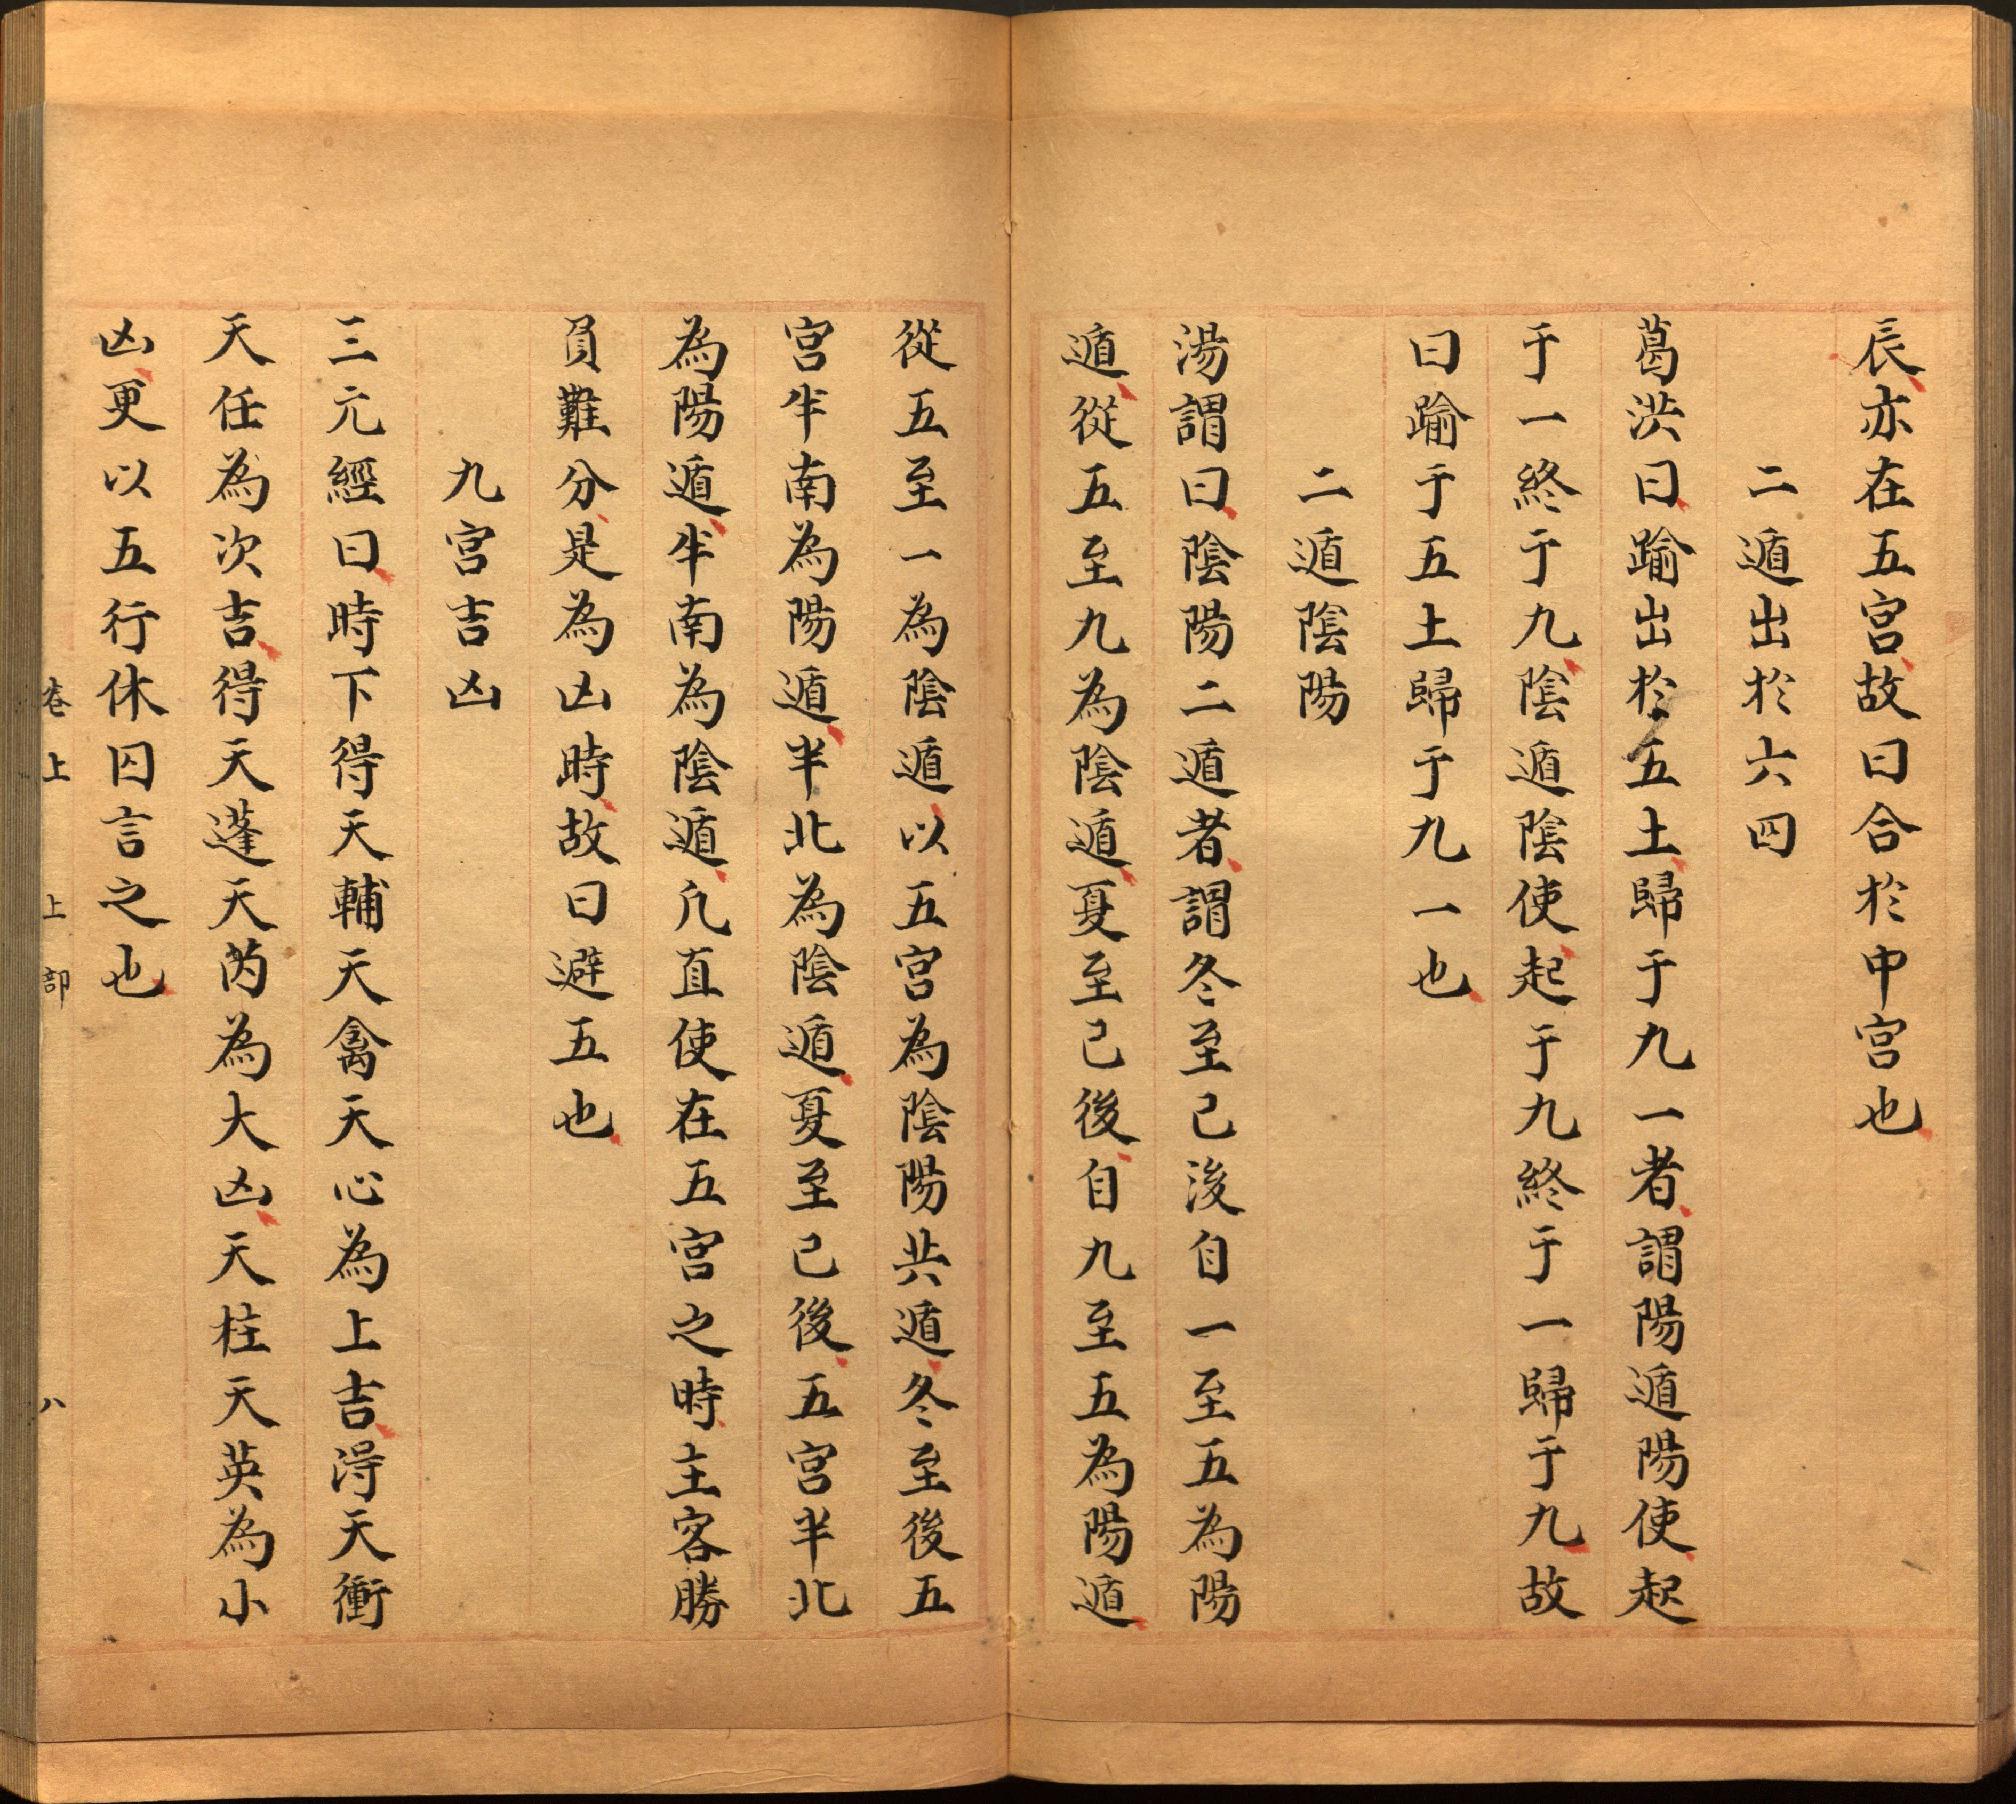 辰亦在五宫故曰合於中宫也
二遁出於六四
葛洪曰踰出於五土歸于九一者謂陽遁陽使起
于一終于九陰遁陰使起于九終于一歸于九故
曰踰于五土歸于九一也
二遁陰陽
湯謂曰陰陽二遁者謂冬至已後自一至五為陽
遁從五至九為陰遁夏至已後自九至五為陽遁
從五至一為陰遁以五宫為陰陽共遁冬至後五
宫半南為陽遁半北為陰遁夏至已後五宫半北
為陽遁半南為陰遁凡直使在五宫之時主客勝
負難分是為凶時故曰避五也
九宫吉凶
三元經曰時下得天輔天禽天心為上吉得天衝
天任為次吉得天蓬天芮為大凶天柱天英為小
凶更以五行休囚言之也
卷上 上部 八